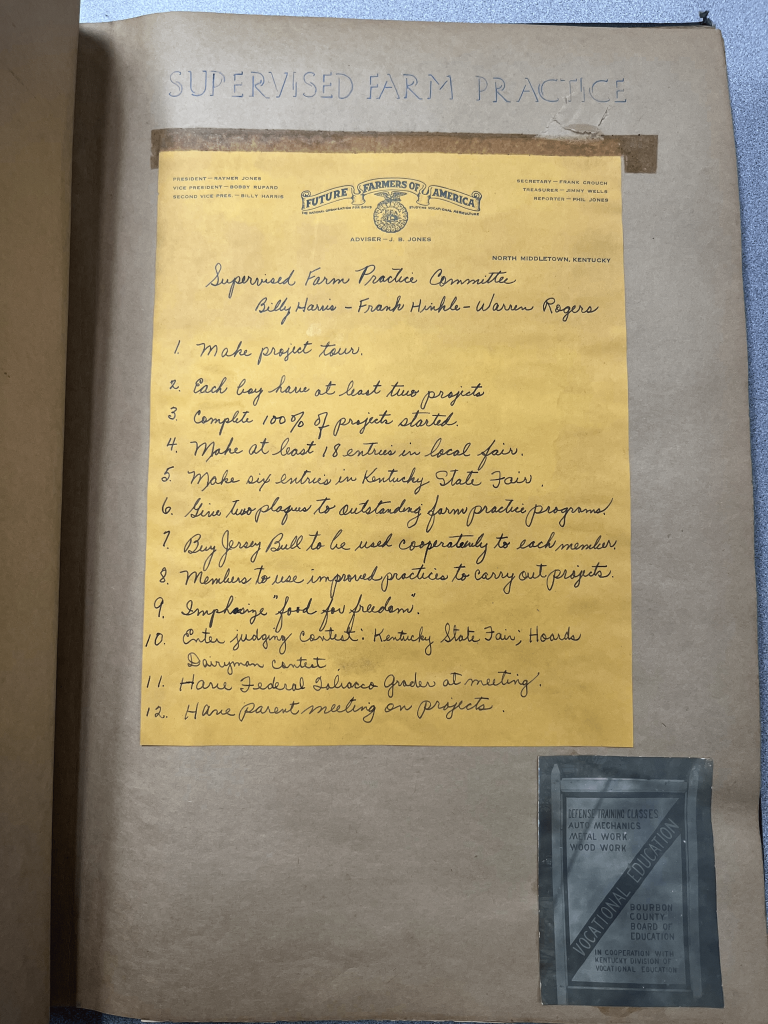 SUPERVISED FARM PRACTICE
PRESIDENT — RAYMER JONES
VICE PRESIDENT — BOBBY RUPARD
SECOND VICE PRES. — BILLY HARRIS
FUTURE FARMERS OF AMERICA
THE NATIONAL ORGANIZATION FOR BOYS STUDYING VOCATIONAL AGRICULTURE
SECRETARY — FRANK CROUCH
TREASURER — JIMMY WELLS
REPORTER — PHIL JONES
ADVISER — J. B. JONES
NORTH MIDDLETOWN, KENTUCKY
Supervised Farm Practice Committee
Billy Harris - Frank Hinkle - Warren Rogers
1. Make project tour.
2. Each boy have at least two projects
3. Complete 100% of projects started.
4. Make at least 18 entries in local fair.
5. Make six entries in Kentucky State Fair.
6. Give two plaques to outstanding farm practice programs.
7. Buy Jersey Bull to be used cooperatively to each member.
8. Members to use improved practices to carry out projects.
9. Imphasize "food for freedom".
10. Enter judging contest: Kentucky State Fair; Hoards
Dairyman contest.
11. Have Federal Tobacco Grader at meeting.
12. Have parent meeting on projects.
DEFENSE TRAINING CLASSES
AUTO MECHANICS
METAL WORK
WOOD WORK
VOCATIONAL EDUCATION
BOURBON
COUNTY
BOARD OF
EDUCATION
IN COOPERATION WITH
KENTUCKY DIVISION OF
VOCATIONAL EDUCATION